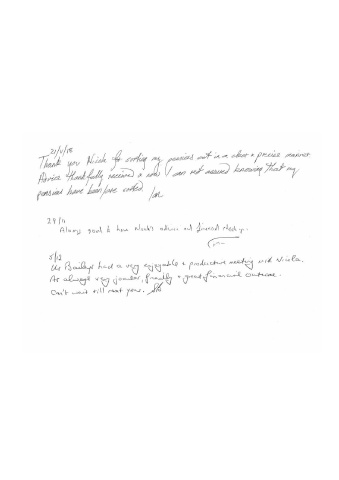 21/11/08
Thank you Nicola for sorting my pensions out in a clear & precise manner
Advice thankfully received & now I can rest assured knowing that my
pensions have been/are sorted.
24/11
Always good to have Nicola's advice and financial check up.
5/12
The Baileys had a very enjoyable & productive meeting with Nicola.
As always very jovial, friendly & good financial outcome.
Can't wait till next year.